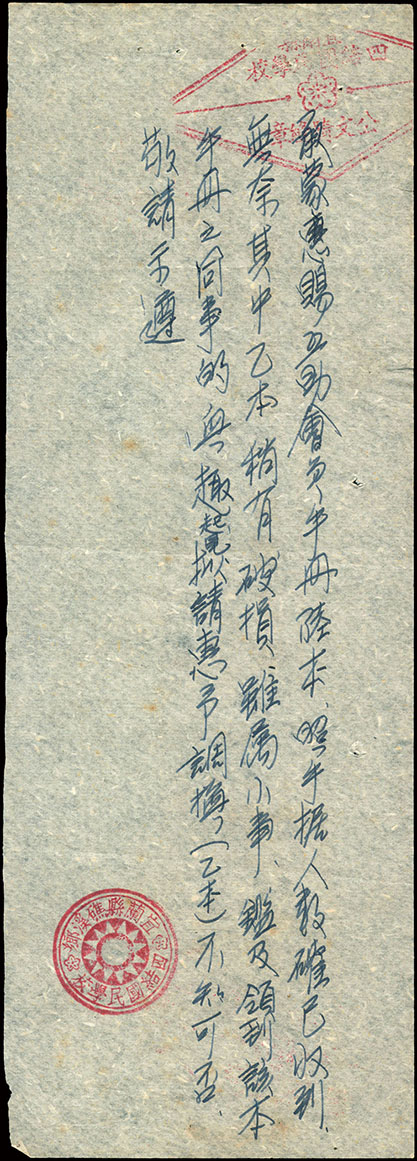 承蒙惠賜互助會員手冊陸本、照手據人數確已收到、
無奈其中乙本稍有破損、雖屬小事、鑑及領到該本
手冊之同事的興趣起見擬請惠予調換（乙本）不知可否、
敬請示遵
四結國民學校
公文騎縫章
宜蘭縣礁溪鄉
四結國民學校